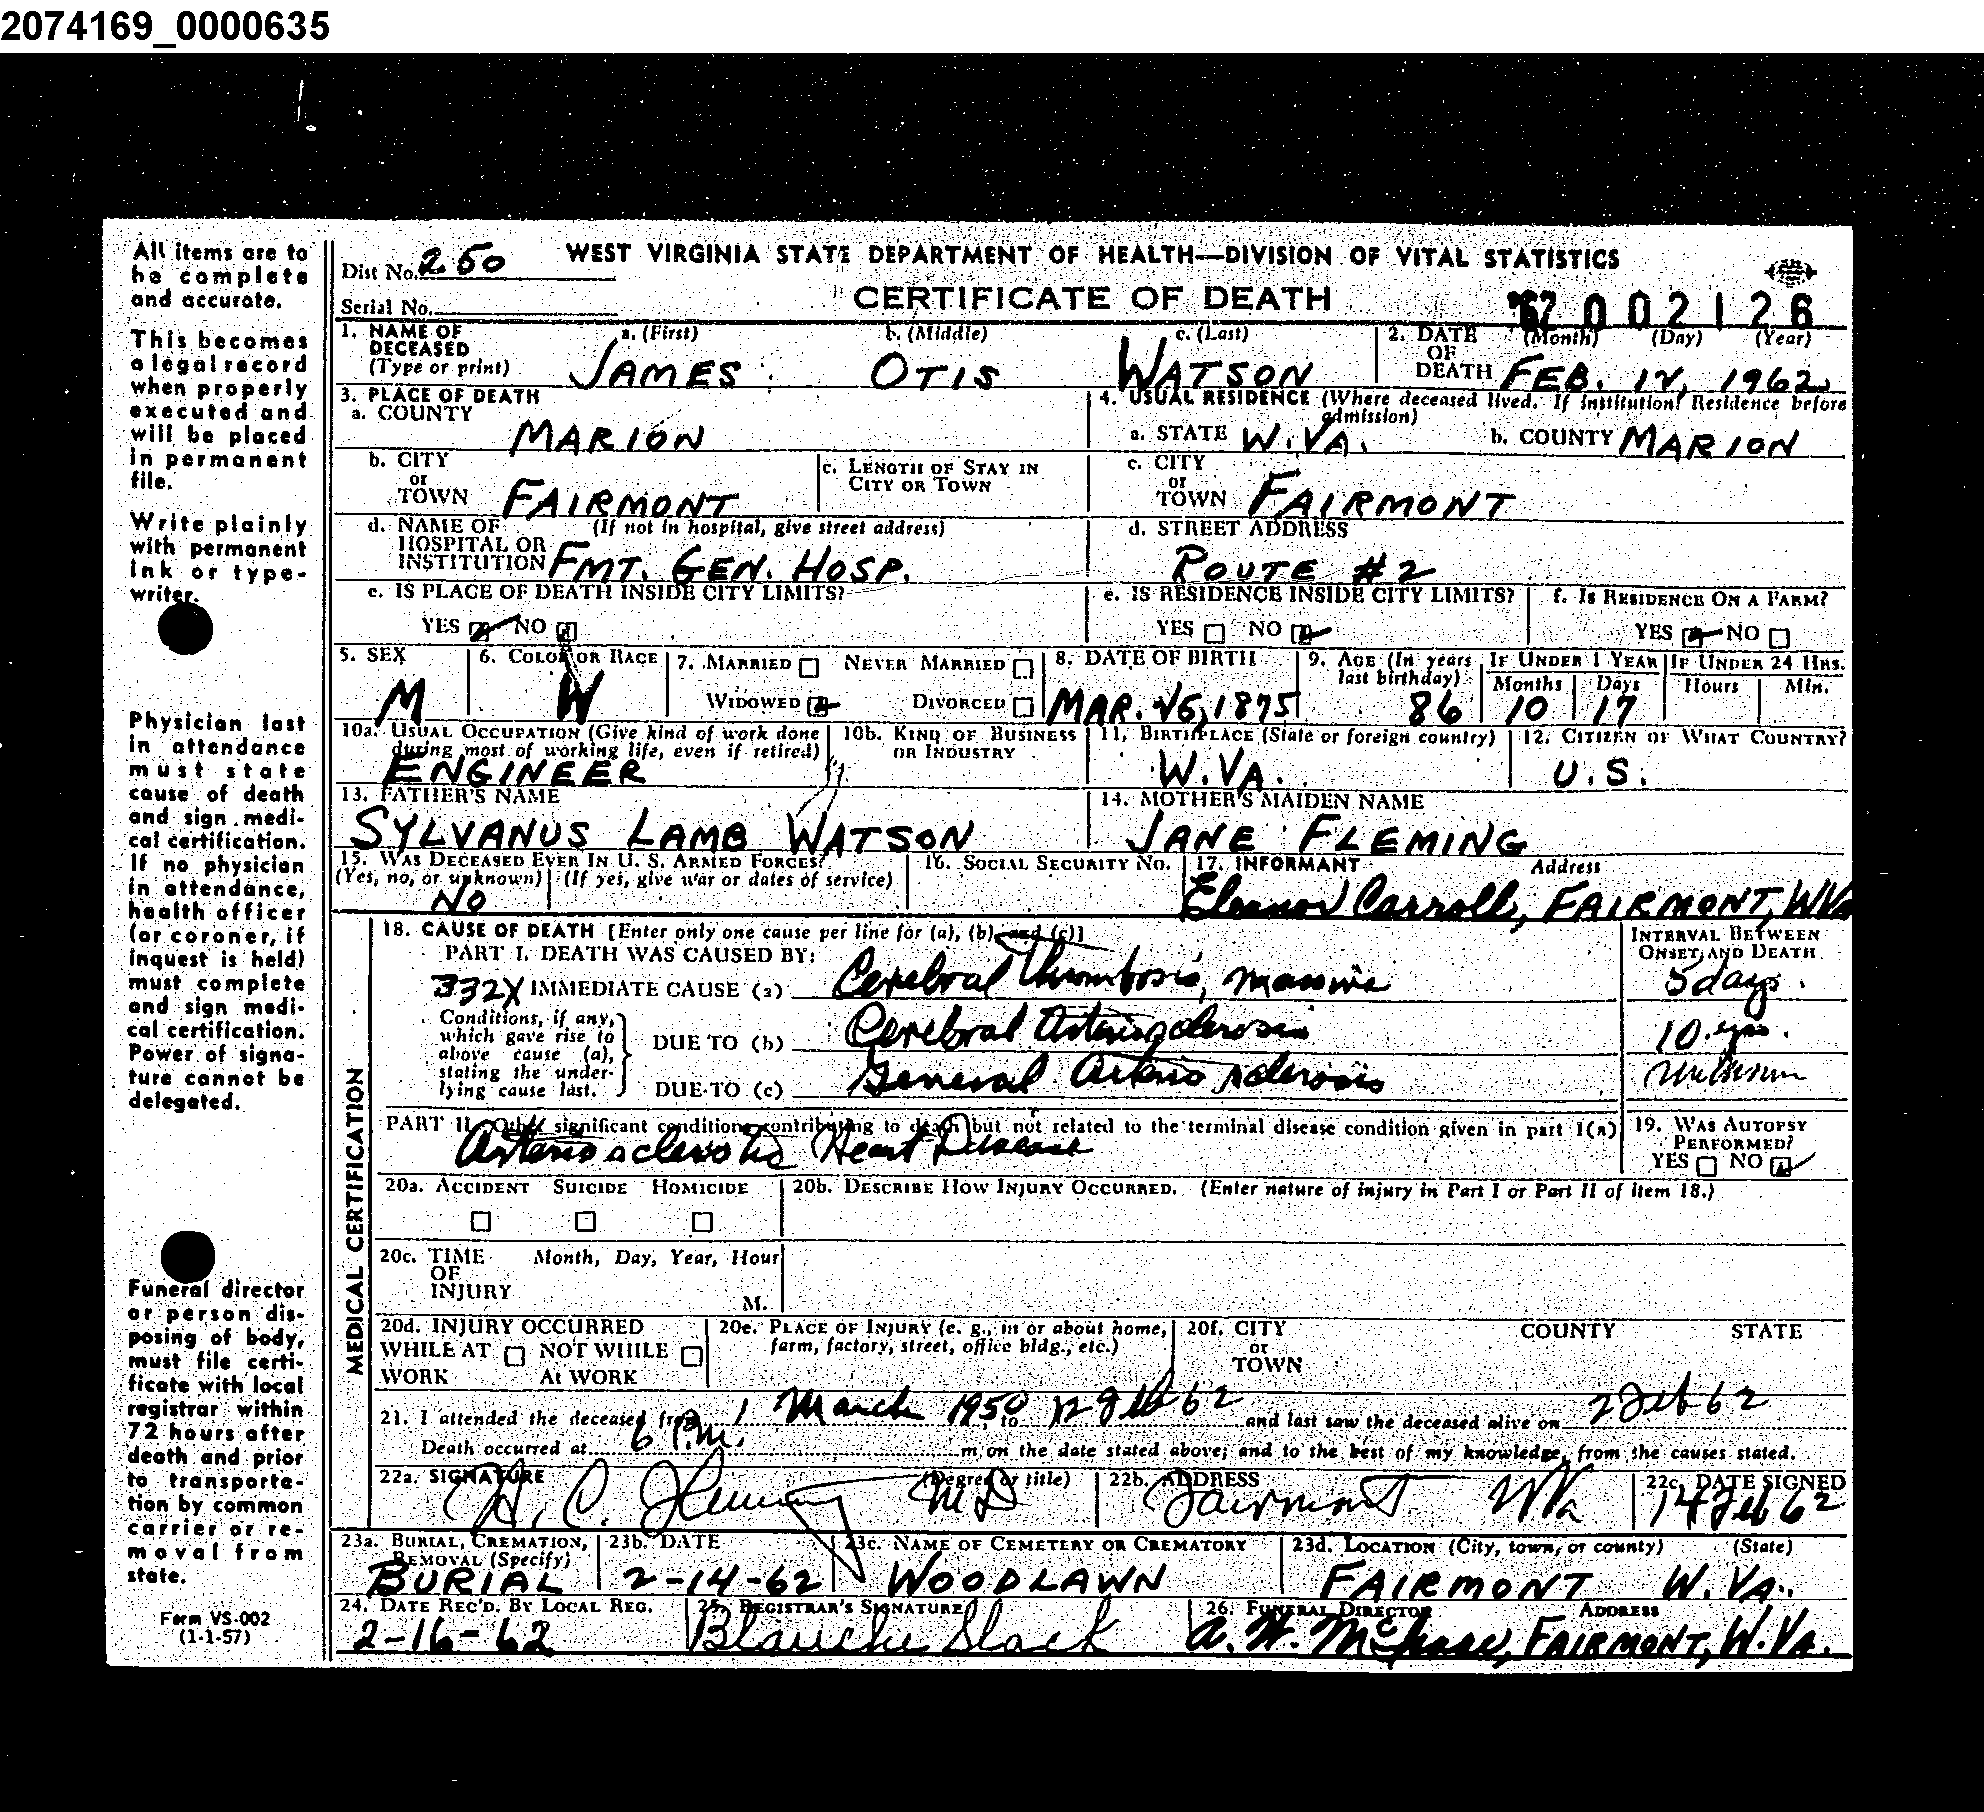 2074169_0000635
All items are to
be complete
and accurate.
This becomes
a legal record
when properly
executed and
will be placed
in permanent
file.
Write plainly
with permanent
ink or type-
writer.
Physician last
in attendance
must state
cause of death
and sign medi-
cal certification.
If no physician
in attendance,
health officer
(or coroner, if
inquest is held)
must complete
and sign medi-
cal certification.
Power of signa-
ture cannot be
delegated.
Funeral director
or person dis-
posing of body,
must file certi-
ficate with local
registrar within
72 hours after
death and prior
to transporta-
tion by common
carrier or re-
moval from
state.
Form VS-002
(1-1-57)
Dist No. 250 WEST VIRGINIA STATE DEPARTMENT OF HEALTH—DIVISION OF VITAL STATISTICS
Serial No. CERTIFICATE OF DEATH 62 002126
1. NAME OF DECEASED (Type or print) a. (First) b. (Middle) c. (Last) 2. DATE OF DEATH (Month) (Day) (Year)
JAMES OTIS WATSON FEB. 12, 1962
3. PLACE OF DEATH 4. USUAL RESIDENCE (Where deceased lived. If institution: Residence before admission)
a. COUNTY MARION a. STATE W.VA. b. COUNTY MARION
b. CITY or TOWN FAIRMONT c. LENGTH OF STAY IN CITY OR TOWN c. CITY or TOWN FAIRMONT
d. NAME OF HOSPITAL OR INSTITUTION (If not in hospital, give street address) FMT. GEN. HOSP. d. STREET ADDRESS ROUTE #2
e. IS PLACE OF DEATH INSIDE CITY LIMITS? e. IS RESIDENCE INSIDE CITY LIMITS? f. IS RESIDENCE ON A FARM?
YES NO YES NO YES NO
5. SEX 6. COLOR OR RACE 7. MARRIED NEVER MARRIED 8. DATE OF BIRTH 9. AGE (In years last birthday) IF UNDER 1 YEAR IF UNDER 24 HRS.
Months Days Hours Min.
M W WIDOWED DIVORCED MAR. 26, 1875 86 10 17
10a. USUAL OCCUPATION (Give kind of work done during most of working life, even if retired) 10b. KIND OF BUSINESS OR INDUSTRY 11. BIRTHPLACE (State or foreign country) 12. CITIZEN OF WHAT COUNTRY?
ENGINEER W.VA. U.S.
13. FATHER'S NAME 14. MOTHER'S MAIDEN NAME
SYLVANUS LAMB WATSON JANE FLEMING
15. WAS DECEASED EVER IN U. S. ARMED FORCES? 16. SOCIAL SECURITY NO. 17. INFORMANT Address
(Yes, no, or unknown) (If yes, give war or dates of service)
NO Eleanor Carroll, FAIRMONT, WVa
MEDICAL CERTIFICATION
18. CAUSE OF DEATH [Enter only one cause per line for (a), (b), and (c)] INTERVAL BETWEEN ONSET AND DEATH
PART I. DEATH WAS CAUSED BY:
332X IMMEDIATE CAUSE (a) Cerebral thrombosis, massive 5 days.
Conditions, if any, which gave rise to above cause (a), stating the under-lying cause last.
DUE TO (b) Cerebral Arteriosclerosis 10 yrs.
DUE TO (c) General Arteriosclerosis unknown
PART II. Other significant conditions contributing to death but not related to the terminal disease condition given in part I(a) 19. WAS AUTOPSY PERFORMED?
Arteriosclerotic Heart Disease YES NO
20a. ACCIDENT SUICIDE HOMICIDE 20b. DESCRIBE HOW INJURY OCCURRED. (Enter nature of injury in Part I or Part II of item 18.)
20c. TIME OF INJURY Month, Day, Year, Hour M.
20d. INJURY OCCURRED 20e. PLACE OF INJURY (e. g., in or about home, farm, factory, street, office bldg., etc.) 20f. CITY or TOWN COUNTY STATE
WHILE AT WORK NOT WHILE At WORK
21. I attended the deceased from 1 March 1950 to 12 Feb 62 and last saw the deceased alive on 2 Feb 62
Death occurred at 6 P.m. m, on the date stated above; and to the best of my knowledge, from the causes stated.
22a. SIGNATURE (Degree or title) 22b. ADDRESS 22c. DATE SIGNED
H. C. Fleming MD Fairmont WVa 14 Feb 62
23a. BURIAL, CREMATION, REMOVAL (Specify) 23b. DATE 23c. NAME OF CEMETERY OR CREMATORY 23d. LOCATION (City, town, or county) (State)
BURIAL 2-14-62 WOODLAWN FAIRMONT W.VA.
24. DATE REC'D. BY LOCAL REG. 25. REGISTRAR'S SIGNATURE 26. FUNERAL DIRECTOR ADDRESS
2-16-62 Blanche Slack A. W. FAIRMONT, W.VA.